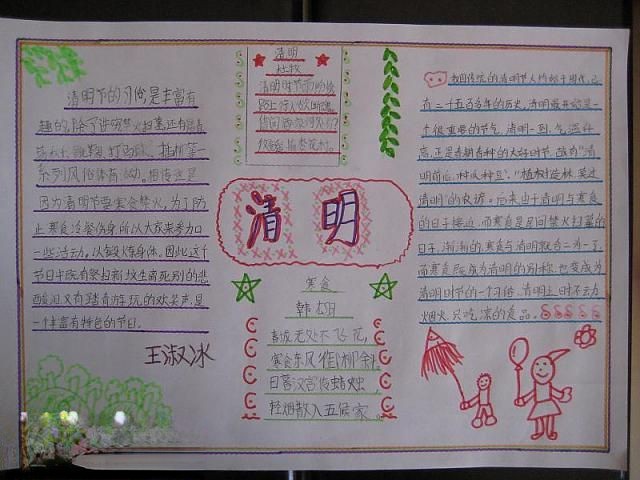 清明节的习俗是丰富有
趣的,除了讲究禁火扫墓,还有踏青
荡秋千、蹴鞠、打马球、插柳等一
系列风俗体育活动。相传这是
因为清明节要寒食禁火,为了防
止寒食冷餐伤身,所以大家来参加
一些活动,以锻炼身体。因此,这个
节日中既有祭扫新坟生离死别的悲
酸泪,又有踏青游玩的欢笑声,是
一个丰富有特色的节日。
王淑冰
清明
杜牧
清明时节雨纷纷
路上行人欲断魂
借问酒家何处有
牧童遥指杏花村
清明
寒食
韩翃
春城无处不飞花
寒食东风御柳斜
日暮汉宫传蜡烛
轻烟散入五侯家
我国传统的清明节大约始于周代,已
有二千五百多年的历史,清明最开始是一
个很重要的节气,清明一到,气温升
高,正是春耕春种的大好时节,故有“清
明前后,种瓜种豆”。“植树造林,莫过
清明”的农谚。后来由于清明与寒食
的日子接近,而寒食是民间禁火扫墓的
日子,渐渐的,寒食与清明就合二为一了,
而寒食既成为清明的别称,也变成为
清明时节的一个习俗,清明之时不动
烟火,只吃凉的食品。